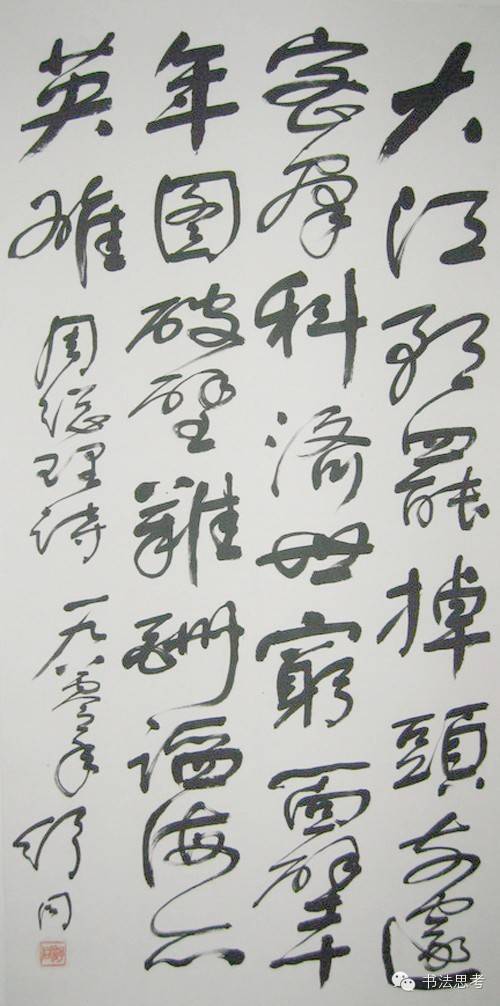 大江歌罷掉頭东邃
密羣科濟世窮面壁十
年图破壁難酬蹈海亦
英雄
周總理詩 一九八零年 舒同
书法思考